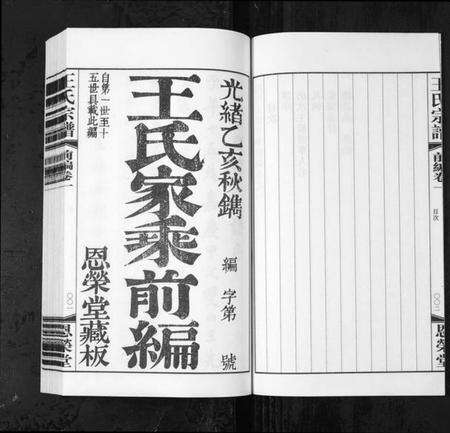 王氏宗譜
前編卷一
目次
〇〇二
恩榮堂
光緒乙亥秋鐫
編 字第 號
王氏家乘前編
自第一世至十
五世具載此編
恩榮堂藏板
王氏宗譜
前編卷一
恩榮堂